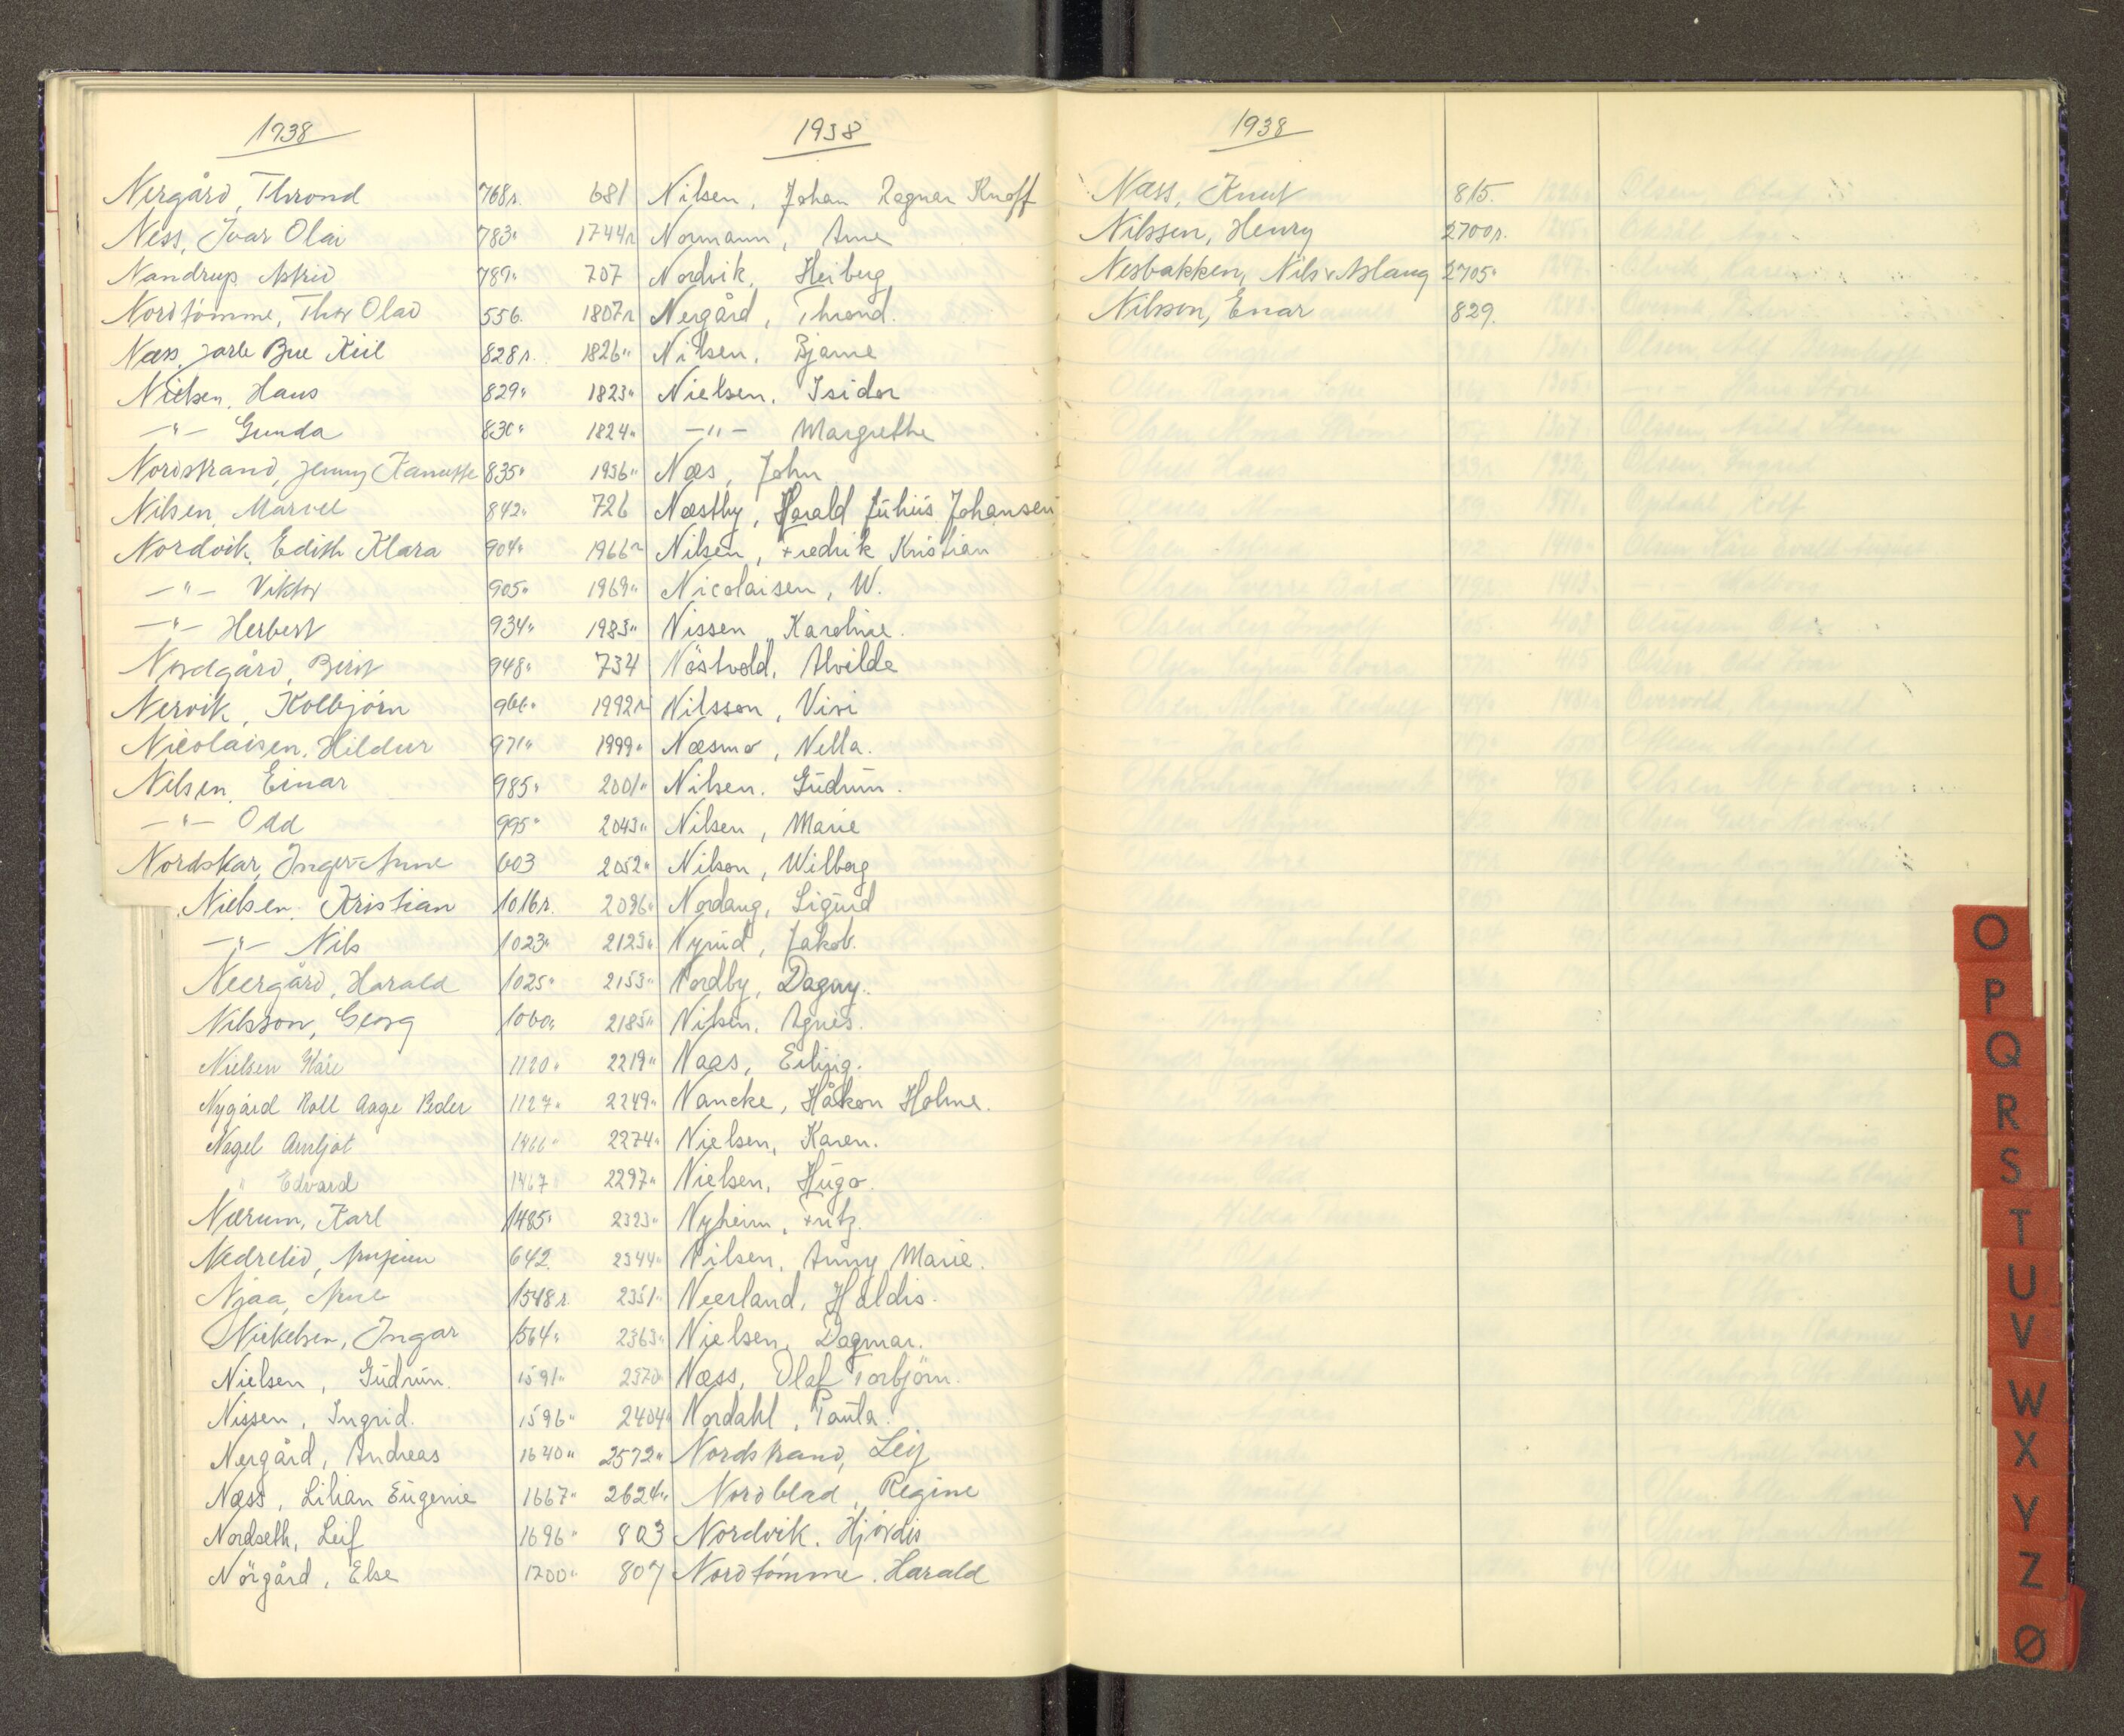 1938
Nergård, Thrond 768r.
Ness, Ivar Olai 783"
Nandrup, Astrid 789"
Nordtømme, Thor Olav 556.
Næss, Jarle Bue Keil 828r.
Nielsen, Hans 829"
—"— Gunda 830"
Nordstrand, Jenny 835"
Nilsen, Marcel 842"
Nordvik, Edith Klara 904"
—"— Viktor 905"
—"— Herbert 934"
Nordgård, Berit 948"
Nervik, Kolbjørn 966"
Nicolaisen, Hildur 971"
Nilsen, Einar 985"
—"— Odd 995"
Nordskar, Inger-Anne 603
Nielsen, Kristian 1016r.
—"— Nils 1023"
Neergård, Harald 1025"
Nilsson, Georg 1060"
Nielsen Kåre 1120"
Nygård Roll Aage Peder 1127"
Nagel Arnljot 1466"
" Edvard 1467
Nærum, Karl 1485"
Nedrelid, 642.
Njaa, Arne 1548r.
Nickelsen, Ingar 1564"
Nielsen, Gudrun. 1591"
Nissen, Ingrid. 1596"
Nergård, Andreas 1640"
Næss, Lilian Eugenie 1667"
Nordseth, Leif 1696"
Nörgård, Else 1700"
1938
681 Nilsen, Johan Ragnar Knoff
1744r Normann, Arne
707 Nordvik, Heiberg
1807r Nergård, Thrond.
1826" Nilsen, Bjarne
1823" Nielsen, Isidor
1824" —"— Margrethe
1936" Næs, John
726 Næstby, Harald Julius Johansen
1966r Nilsen, Fredrik Kristian
1969" Nicolaisen, W.
1983" Nissen, Karoline.
734 Nöstvold, Alvilde
1992r Nilsson, Vivi
1999" Næsmo, Nella.
2001" Nilsen. Gudrun.
2043" Nilsen, Marie
2052" Nilson, Wilborg
2096" Nordaug, Sigurd
2123" Nyrud, Jakob.
2153" Nordby, Dagny.
2185" Nilsen, Agnes.
2219" Naas, Erling.
2249" Nancke, Håkon Holme.
2274" Nielsen, Karen.
2297" Nielsen, Hugo.
2323" Nyheim, Fritz.
2344" Nilsen, Anny Marie.
2351" Neerland, Haldis.
2363" Nielsen, Dagmar.
2370" Næss, Olaf Torbjörn.
2404" Nordahl, Paula.
2572" Nordstrand, Leif
2624" Nordblad, Regine
803 Nordvik. Hjørdis
807 Nordtømme. Harald
1938
Næss, Knut 815.
Nilssen, Henry 2700r.
Nesbakken, Nils v Aslaug 2705"
Nilsson, Einar 829.
O
P
Q
R
S
T
U
V
W
X
Y
Z
Ø